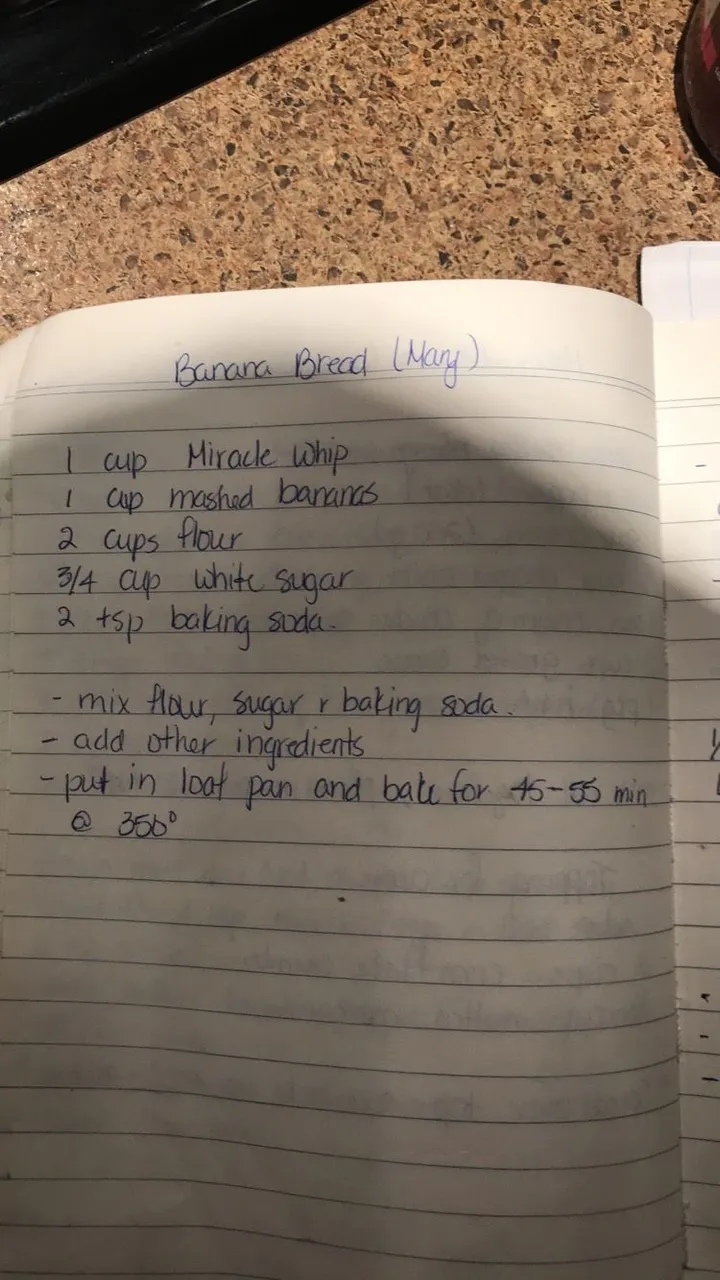 Banana Bread (Mary)
1 cup Miracle Whip
1 cup mashed bananas
2 cups flour
3/4 cup white sugar
2 tsp baking soda.
- mix flour, sugar & baking soda.
- add other ingredients
- put in loaf pan and bake for 45-55 min
@ 350°